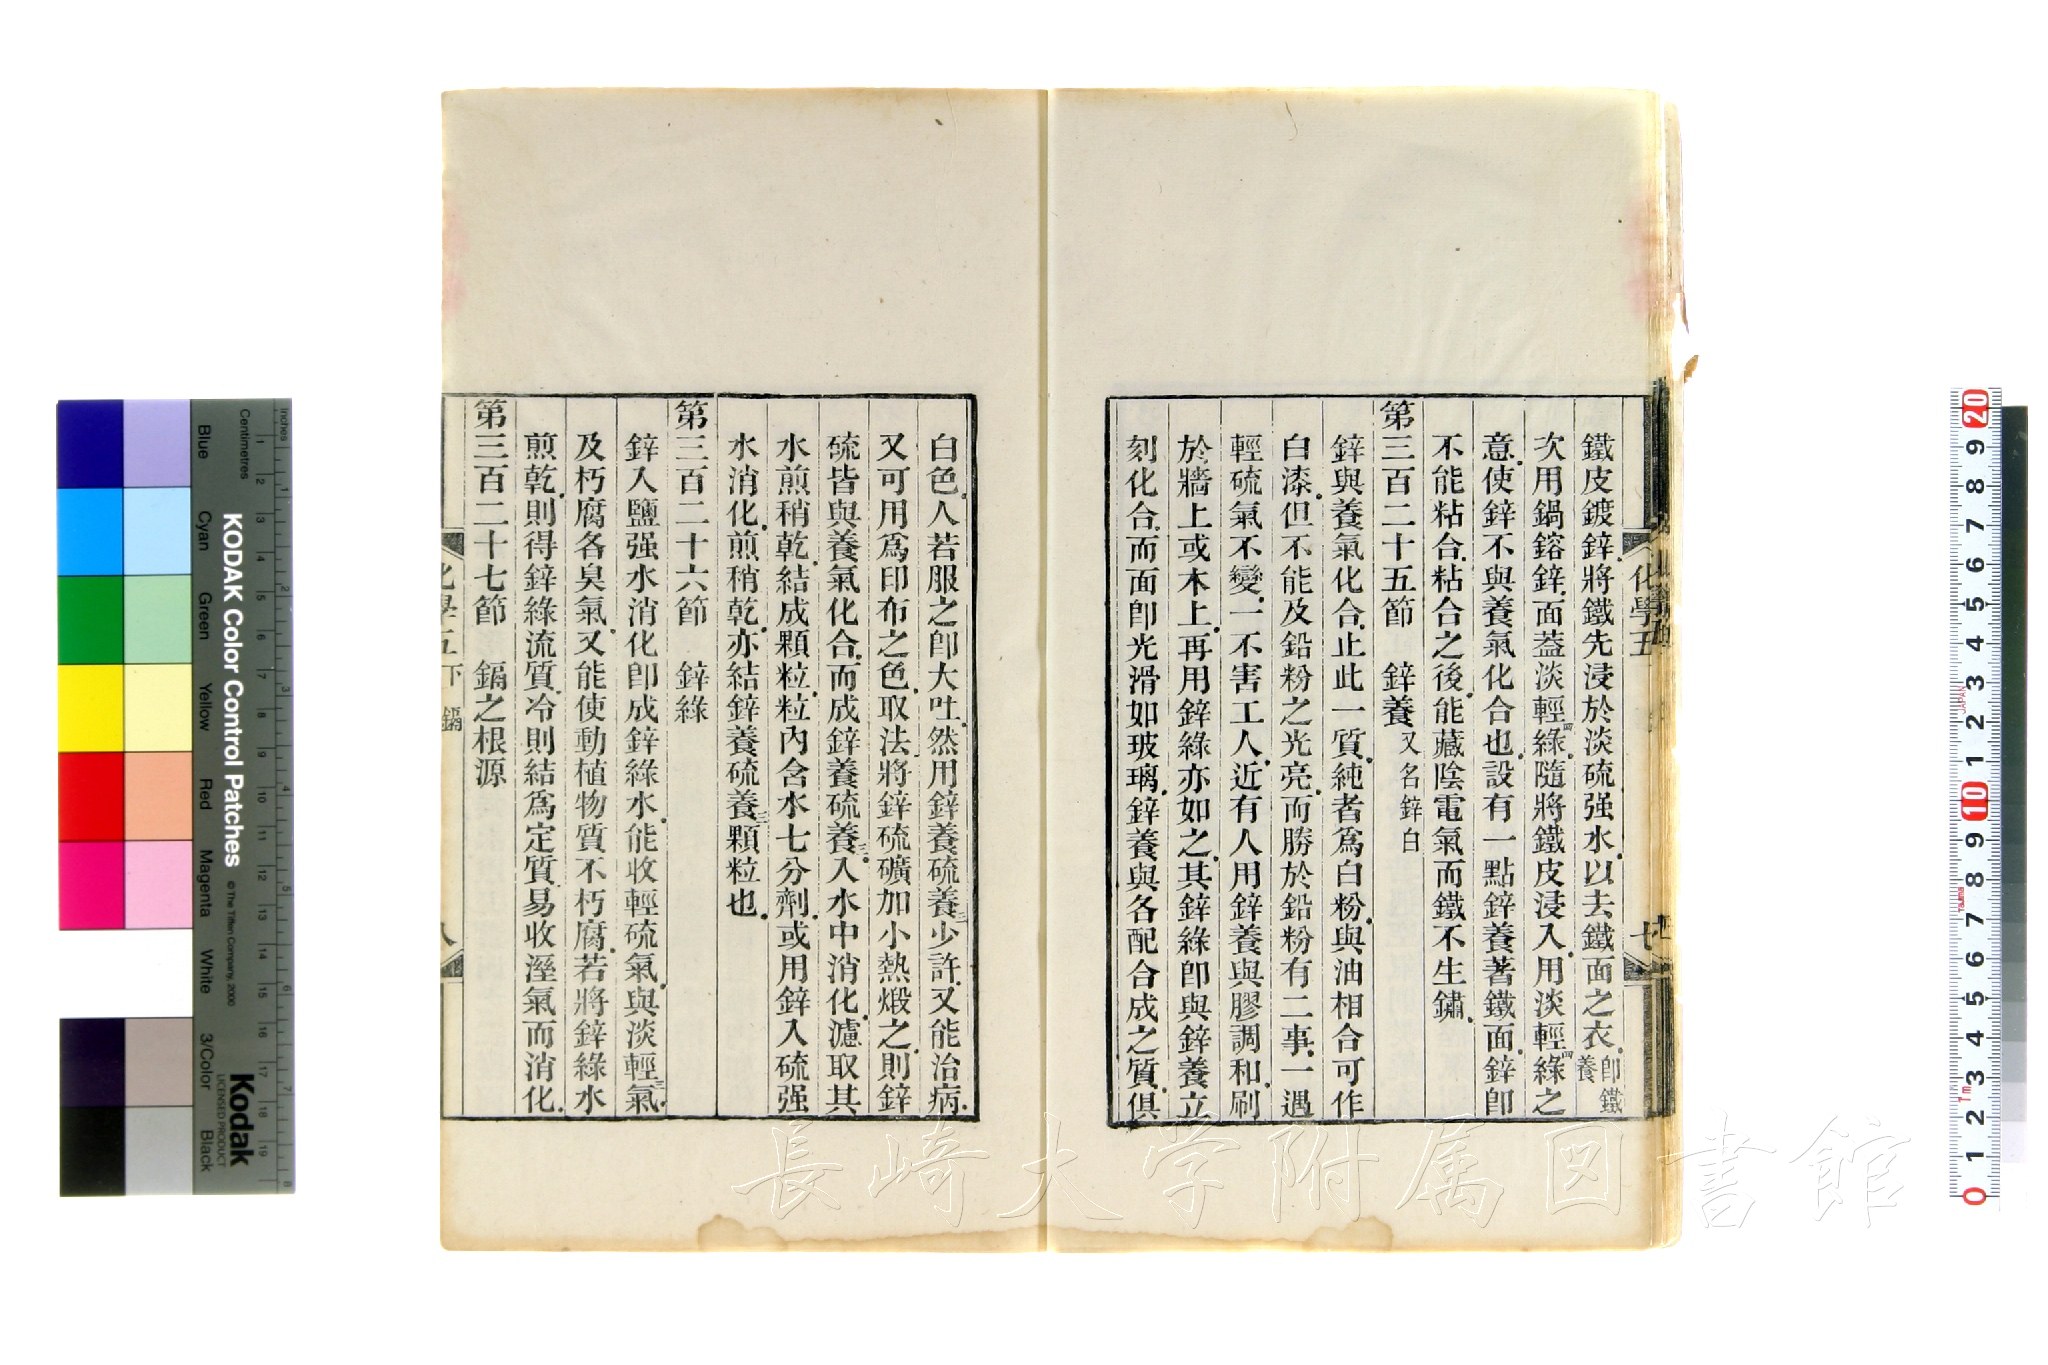 鐵皮鍍鋅.將鐵先浸於淡硫强水.以去鐵面之衣.卽鐵養
次用鍋鎔鋅.面葢淡輕四綠.隨將鐵皮浸入.用淡輕四綠之
意.使鋅不與養氣化合也.設有一點鋅養著鐵面.鋅卽
不能粘合.粘合之後.能藏陰電氣而鐵不生鏽.
第三百二十五節　鋅養又名鋅白
鋅與養氣化合.止此一質.純者爲白粉.與油相合可作
白漆.但不能及鉛粉之光亮.而勝於鉛粉有二事.一遇
輕硫氣不變.一不害工人.近有人用鋅養與膠調和.刷
於牆上或木上.再用鋅綠亦如之.其鋅綠卽與鋅養立
刻化合.而面卽光滑如玻璃.鋅養與各配合成之質.俱
白色.人若服之卽大吐.然用鋅養硫養三少許.又能治病.
又可用爲印布之色.取法將鋅硫礦加小熱煅之.則鋅
硫皆與養氣化合.而成鋅養硫養三.入水中消化.濾取其
水煎稍乾.結成顆粒.粒內含水七分劑.或用鋅入硫强
水消化.煎稍乾.亦結鋅養硫養三顆粒也.
第三百二十六節　鋅綠
鋅入鹽强水消化卽成鋅綠水.能收輕硫氣.與淡輕三氣.
及朽腐各臭氣.又能使動植物質不朽腐.若將鋅綠水
煎乾.則得鋅綠流質.冷則結爲定質.易收溼氣而消化.
第三百二十七節　鎘之根源
化學五下　鎘
八
化學五
七
長崎大学附属図書館
KODAK Color Control Patches
© The Tiffen Company, 2000
Kodak
LICENSED PRODUCT
Inches
Centimetres
Blue
Cyan
Green
Yellow
Red
Magenta
White
3/Color
Black
1 2 3 4 5 6 7 8
1 2 3 4 5 6 7 8 9 10 11 12 13 14 15 16 17 18 19
20 9 8 7 6 5 4 3 2 1 10 9 8 7 6 5 4 3 2 1 0
JAPAN